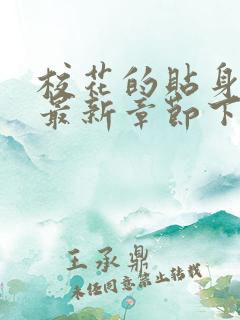 校花的贴身
最新章节下
王承鼎
未经同意禁止转载